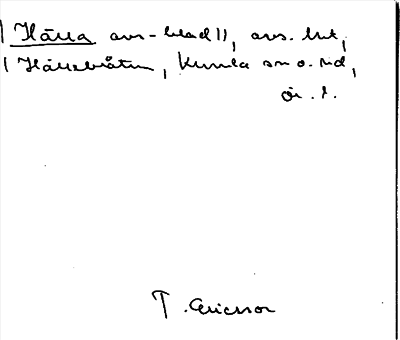 Hälla avs-blad 11, avs. hut,
Hällebråten, Kumla sn o. hd,
ör. l.
T. Ericsson